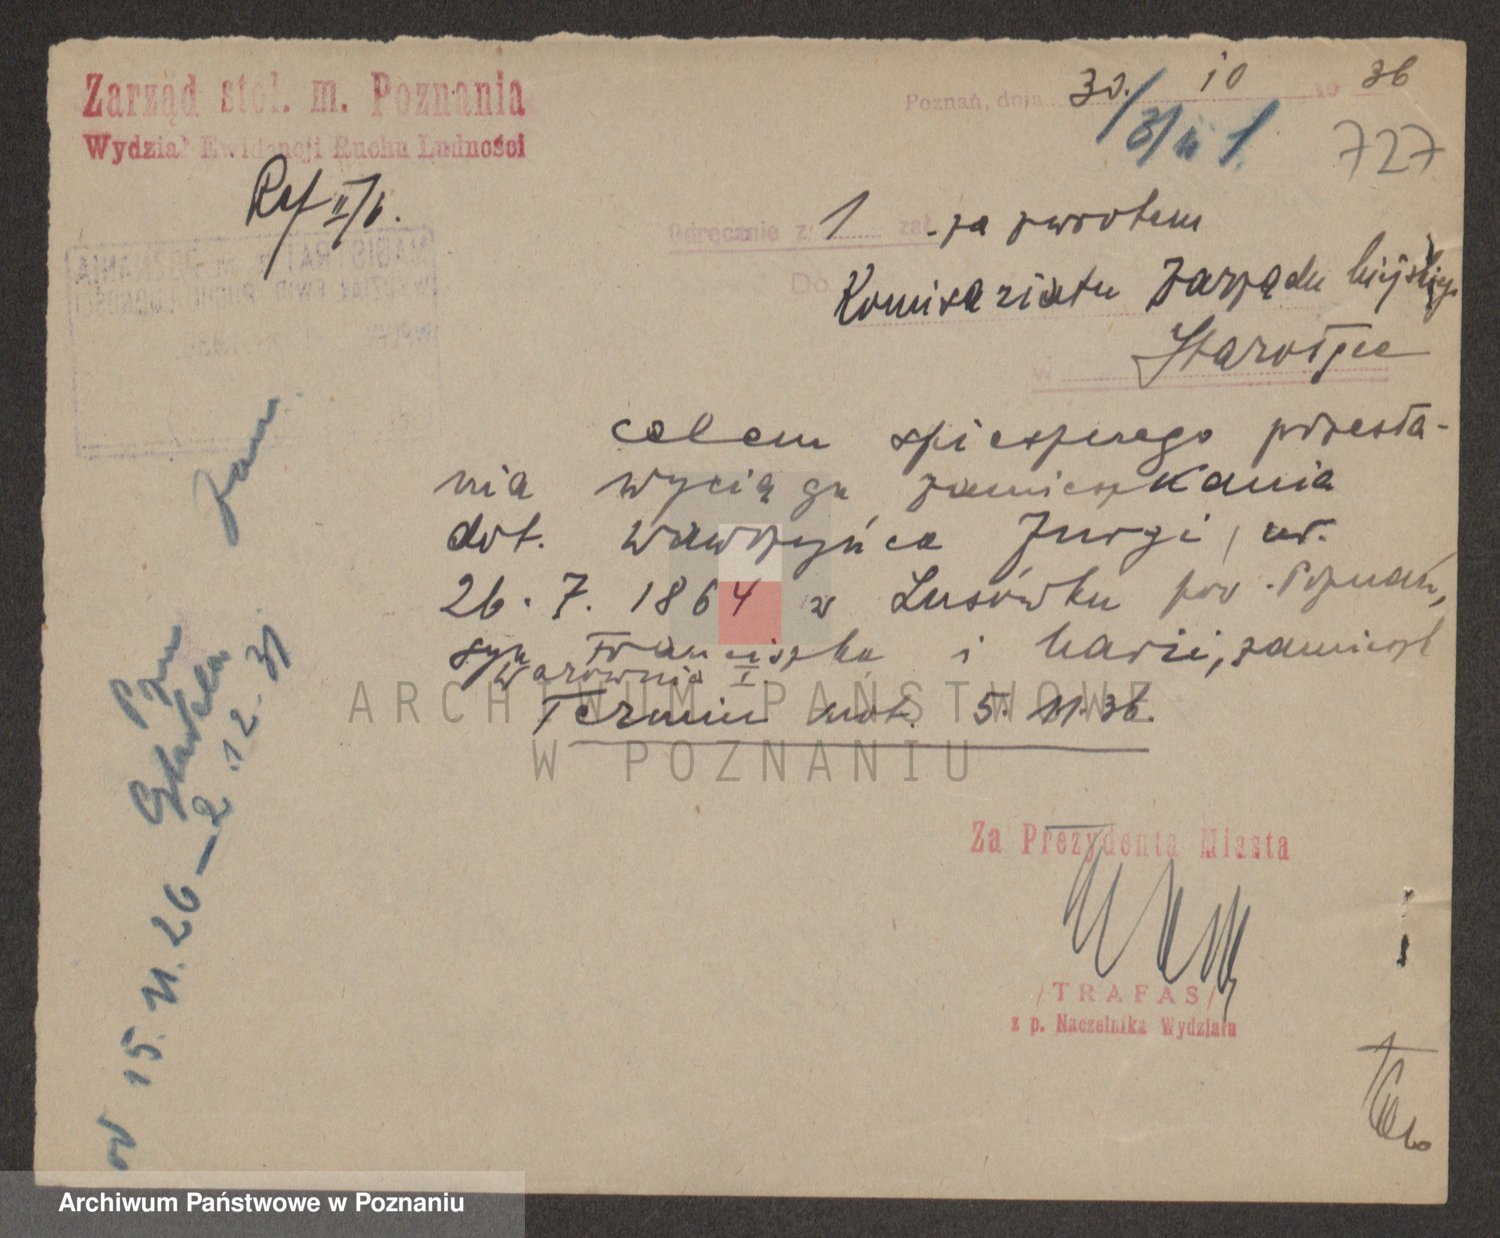 Zarząd stoł. m. Poznania
Wydział Ewidencji Ruchu Ludności
Ref II/b.
Poznań, dnia 30. 10 19 36
727
Odręcznie z 1 zał. za zwrotem
Do
Komisariatu Zarządu Miejskiego
w Starołęce
celem spiesznego przesła-
nia wyciągu zamieszkania
dot. Wawrzyńca Jurgi, ur.
26. 7. 1864 w Lusówku pow. Poznań,
syn Franciszka i Marii, zamieszk
Warownia I.
Termin 5. 11. 36.
Za Prezydenta Miasta
/TRAFAS/
z p. Naczelnika Wydziału
od 15. 11. 26 — 2. 12. 31
ARCHIWUM PAŃSTWOWE
W POZNANIU
Archiwum Państwowe w Poznaniu